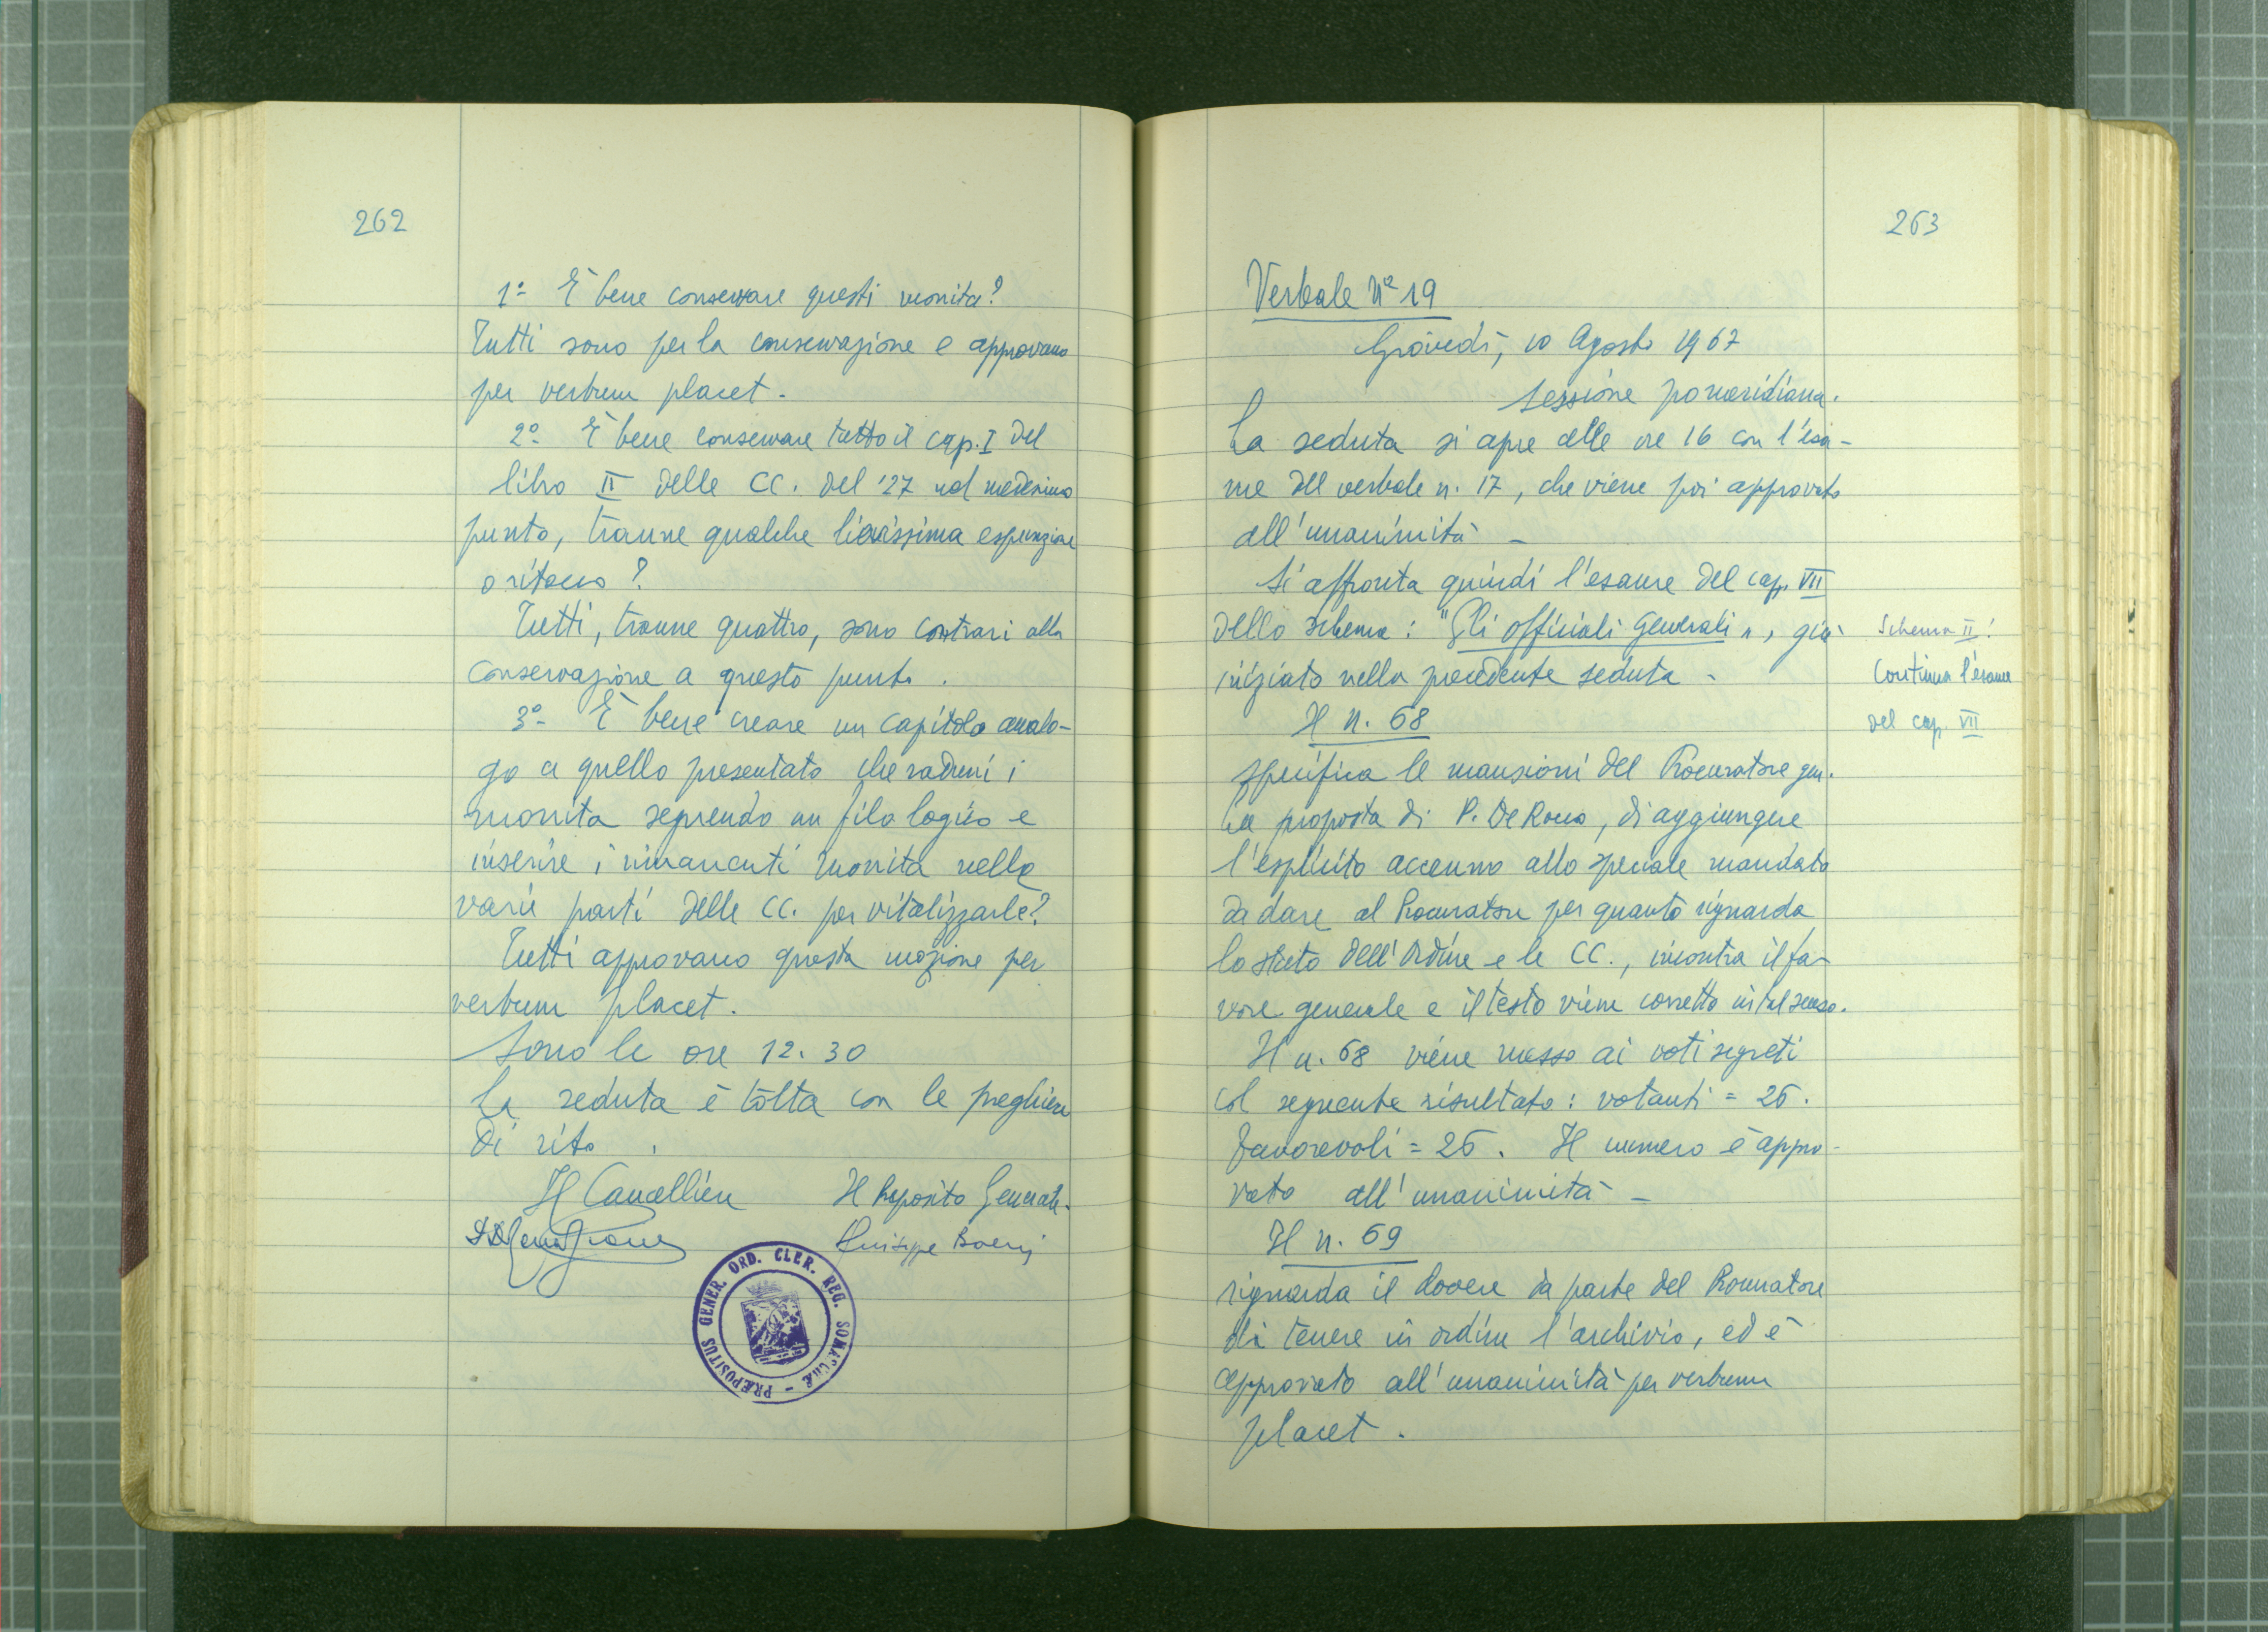 262
1º- È bene conservare questi monita?
Tutti sono per la conservazione e approvano
per verbum placet.
2º- È bene conservare tutto il cap. I del
libro II delle CC. del '27 nel medesimo
punto, tranne qualche lievissima espunzione
o ritocco?
Tutti, tranne quattro, sono contrari alla
conservazione a questo punto.
3º- È bene creare un capitolo analo-
go a quello presentato che raduni i
monita seguendo un filo logico e
inserire i rimanenti monita nelle
varie parti delle CC. per vitalizzarle?
Tutti approvano questa mozione per
verbum placet.
Sono le ore 12.30
La seduta è tolta con le preghiere
di rito.
Il Cancelliere Il Preposito Generale.
Giuseppe Boeris
PRÆPOSITUS GENER. ORD. CLER. REG. SOMASCHÆ -
263
Verbale Nº 19
Giovedì, 10 Agosto 1967
Sessione pomeridiana.
La seduta si apre alle ore 16 con l'esa-
me del verbale n. 17, che viene poi approvato
all'unanimità -
Si affronta quindi l'esame del cap. VII
dello schema: "Gli officiali Generali", già
iniziato nella precedente seduta -
Schema II:
Continua l'esame
del cap. VII
Il n. 68
specifica le mansioni del Procuratore gen.
La proposta di P. De Rocco, di aggiungere
l'esplicito accenno allo speciale mandato
da dare al Procuratore per quanto riguarda
lo stato dell'Ordine e le CC., incontra il fa-
vore generale e il testo viene corretto in tal senso.
Il n. 68 viene messo ai voti segreti
col seguente risultato: votanti = 26.
Favorevoli = 26. Il numero è appro-
vato all'unanimità -
Il n. 69
riguarda il dovere da parte del Procuratore
di tenere in ordine l'archivio, ed è
approvato all'unanimità per verbum
placet.